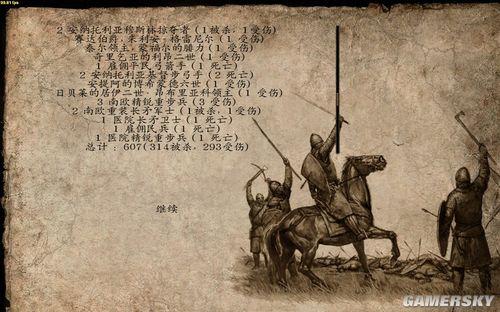 99.81fps
2 安纳托利亚穆斯林掠夺者 (1被杀, 1受伤)
赛达伯爵, 莱利安·格雷尼尔 (1受伤)
泰尔领主, 蒙福尔的腓力 (1受伤)
奇里乞亚的利昂二世 (1受伤)
1 雇佣平民弓箭手 (1 死亡)
2 安纳托利亚基督步弓手 (2 死亡)
安提阿的博希蒙德六世 (1受伤)
日贝莱的居伊二世, 昂布里亚科领主 (1受伤)
3 南欧精锐重步兵 (3 受伤)
2 南欧重装长矛军士 (1被杀, 1受伤)
1 医院长矛卫士 (1 死亡)
1 雇佣民兵 (1 死亡)
1 医院精锐重步兵 (1 死亡)
总计: 607(314被杀, 293受伤)
继续
GAMERSKY